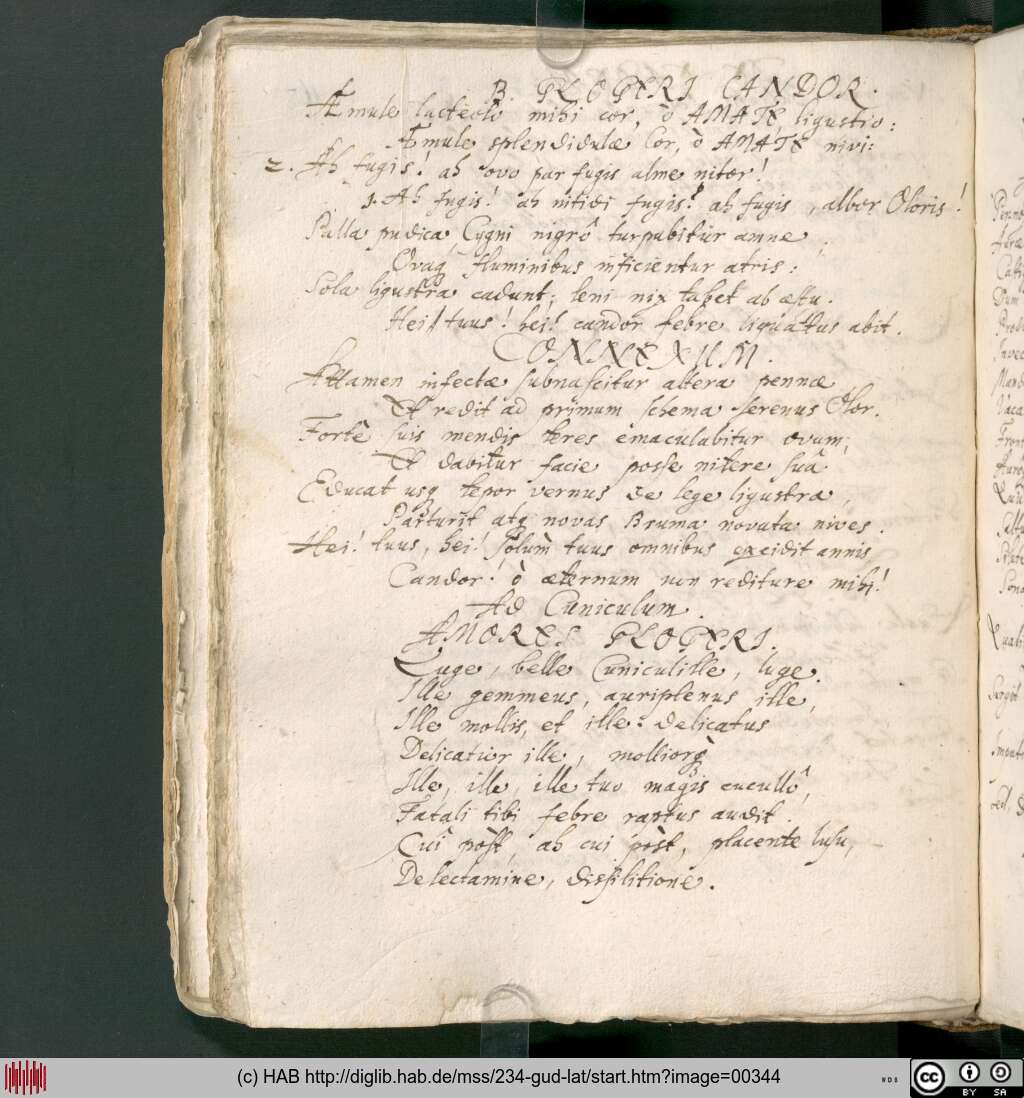 B. PLOTERI CANDOR.
Æmule lacteolo mihi cor, ò AMATE, ligustro:
Æmule splendidulæ cor, ò AMATE nivi:
2. Ah fugis! ah ovo par fugis alme nitor!
1. Ah fugis! ah nitidi fugis! ah fugis, albor Oloris!
Pulla pudica, Cygni nigrô turpabitur amne,
Ovaq, fluminibus inficientur atris:
Sola ligustra cadunt; leni nix tabet ab æstu.
Hei! tuus! hei! candor febre liquattus abit.
CONNEXUM.
Attamen infectæ subnascitur altera pennæ,
Et redit ad primum schema serenus Olor.
Fortè suis mendis teres emaculabitur ovum;
Et dabitur facie posse nitere suâ
Educat usq, tepor vernus de lege ligustra,
Parturit atq, novas Bruma novata nives.
Hei! tuus, hei! solùm tuus omnibus excidit annis
Candor. ò æternum non rediture mihi!
Ad Cuniculum.
AMORES PLOTERI.
Luge, belle Cuniculille, luge.
Ille gemmeus, auriplenus ille,
Ille mollis, et ille delicatus
Delicatior ille, molliorq̀
Ille, ille, ille tuo magis cucullô,
Fatali tibi febre raptus audit.
Cui pòst, ah cui pòst, placente lusu,
Delectamine, dissilitione.
(c) HAB http://diglib.hab.de/mss/234-gud-lat/start.htm?image=00344
WDB
cc BY SA